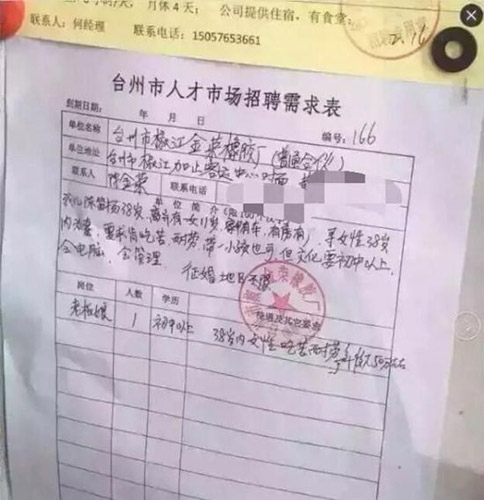 月休4天; 公司提供住宿, 有食堂;
联系人: 何经理 联系电话: 15057653661
台州市人才市场招聘需求表
到期日期: 年 月 日 编号: 166
单位名称 台州市椒江金荣橡胶厂 (普通合伙)
单位地址 台州市椒江加止客运中心对面
联系人 陈金荣 联系电话
单位简介
38岁, 离异有一女11岁, 有房有 ), 寻女性38岁
内, 要求肯吃苦, 耐劳, 带一小孩也可, 但文化要初中以上,
会电脑, 会管理 征婚地区不限
岗位 人数 学历 待遇及其它要求
老板娘 1 初中以上 38岁内女性 吃苦耐劳 年收入50万左右